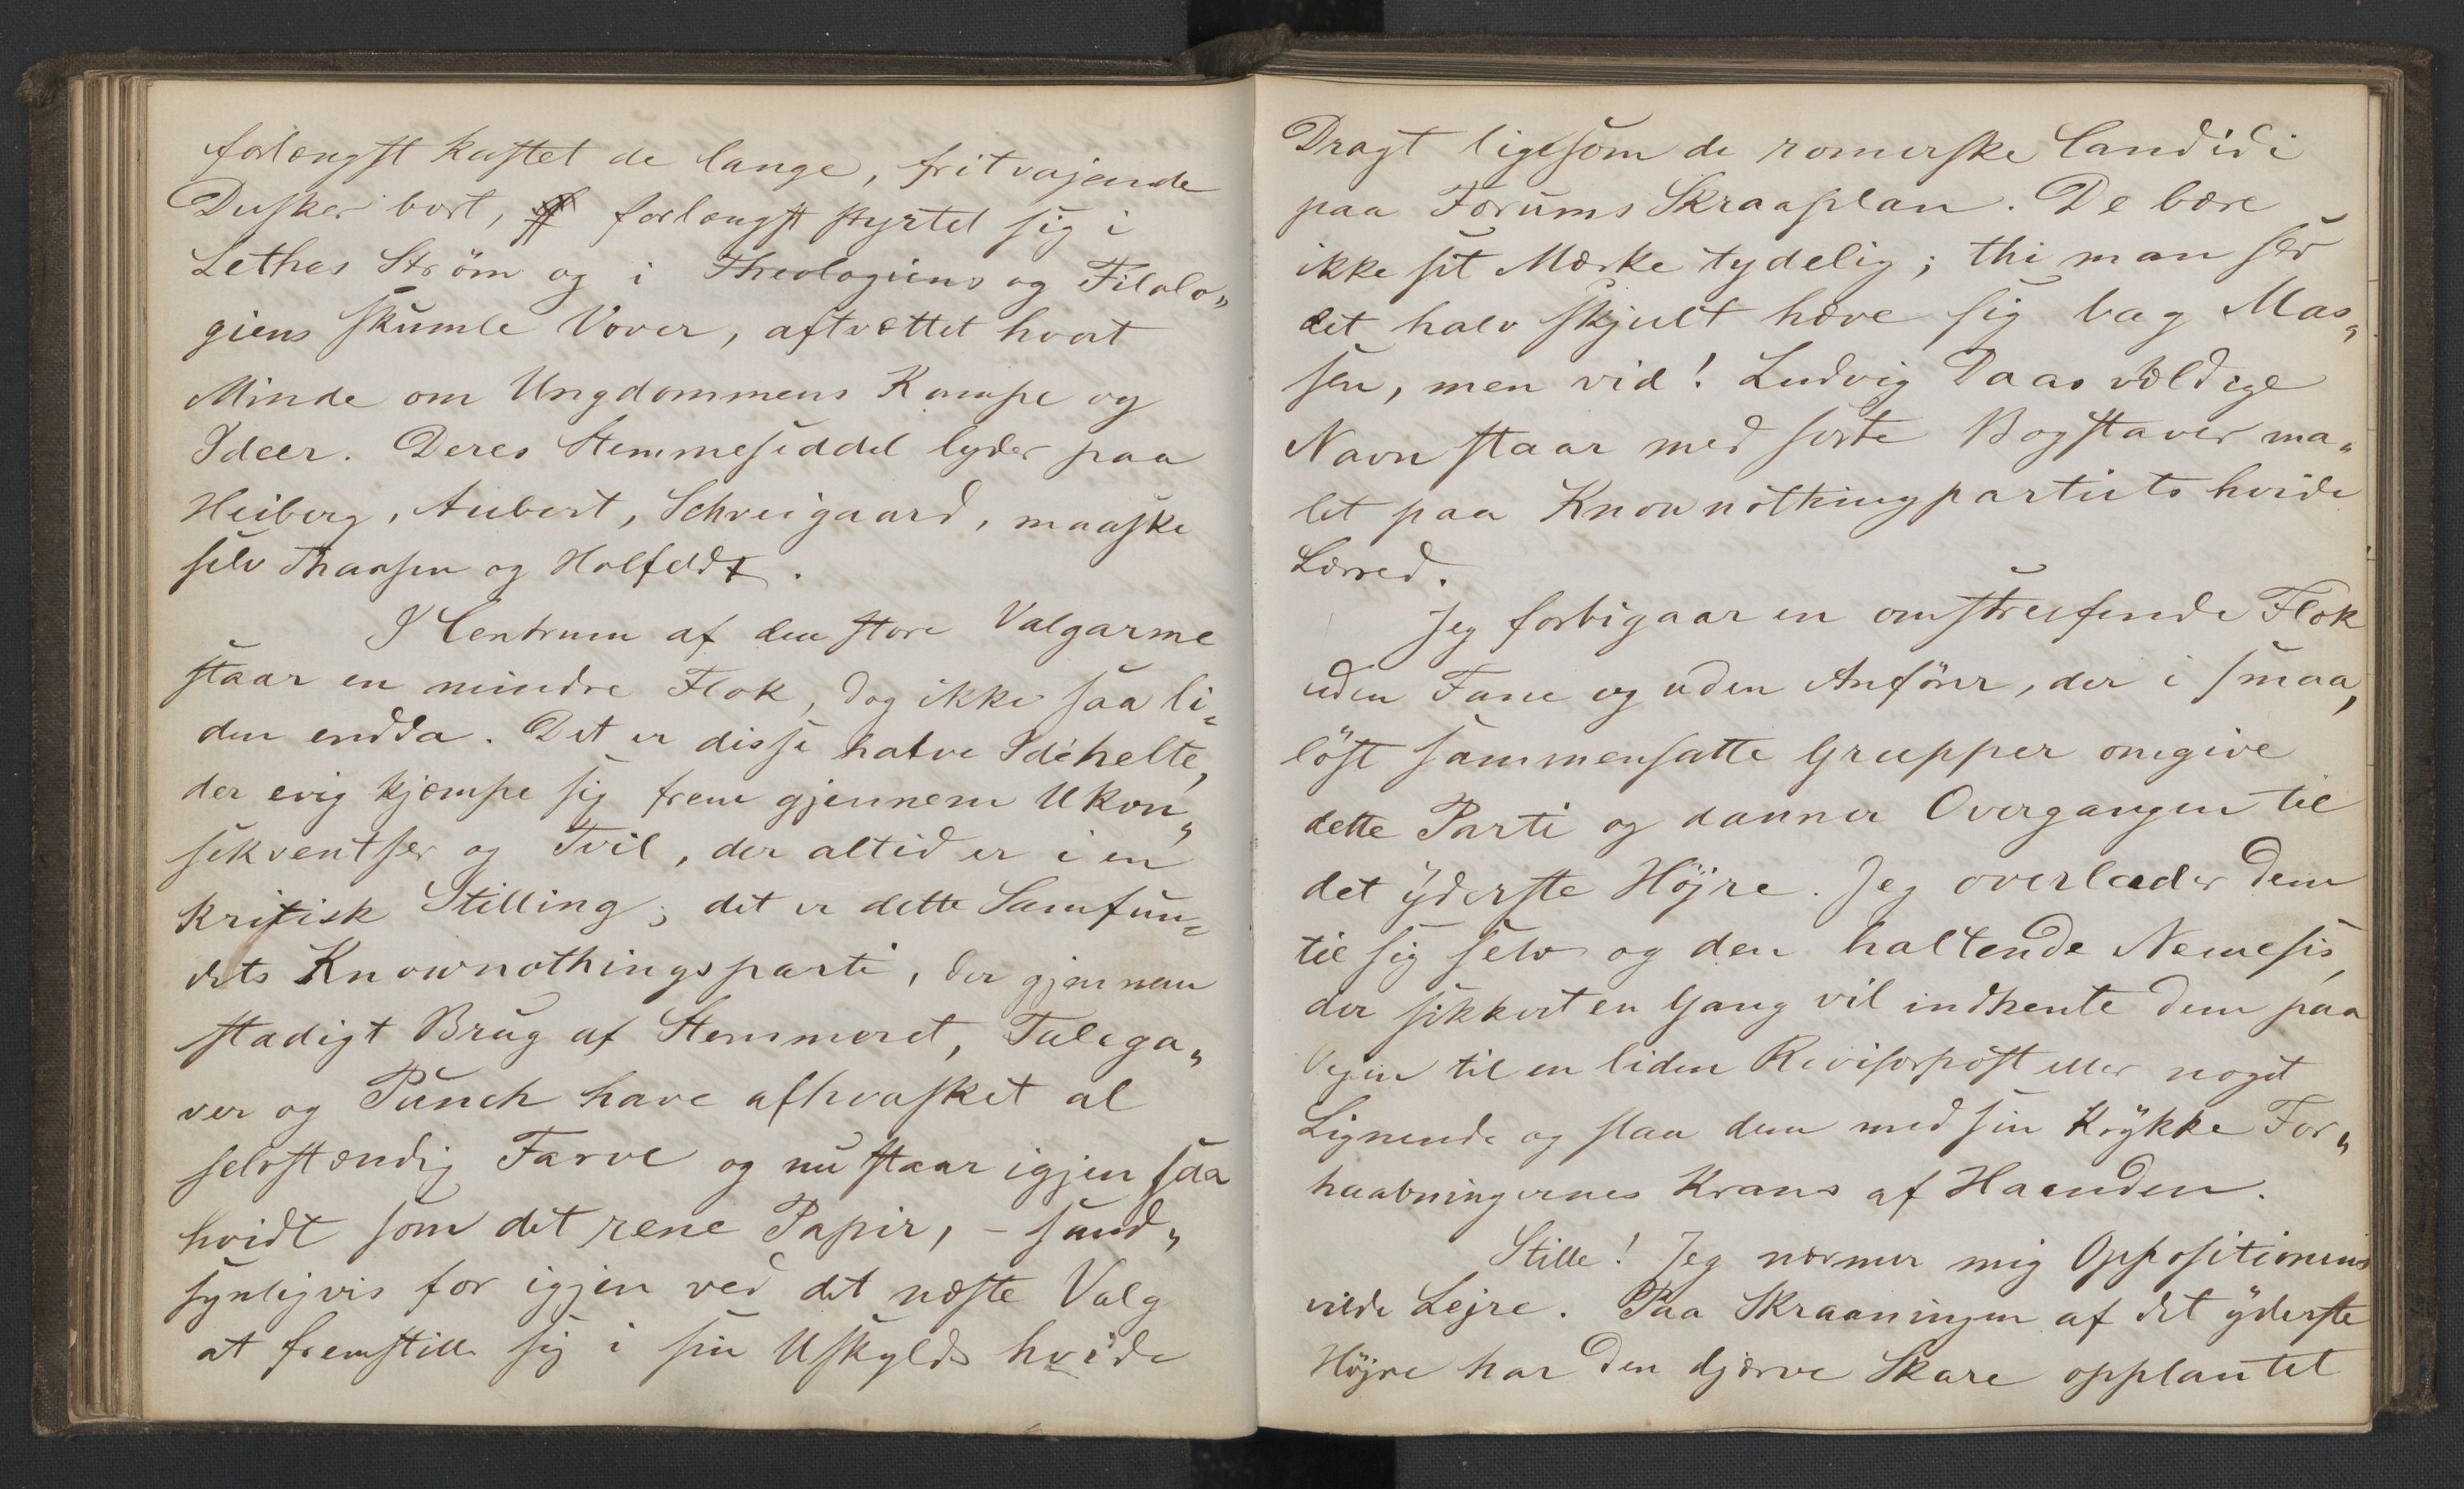 forlængst kastet de lange, fritvajende
Dusker bort, forlængst styrtet sig i
Lethes Strøm og i Theologiens og Filolo„
giens skumle Vover, aftvættet hvert
Minde om Ungdommens Kampe og
Ideer. Deres Stemmeseddel lyder paa
Heiberg, Aubert, Schveigaard, maaske
selv Thaasen og Holfeldt.
I Centrum af den store Valgarme
staar en mindre Flok, dog ikke saa li„
den endda. Det er disse halve Idéhelte,
der evig kjæmpe sig frem gjennem Ukon„
sekventser og Tvil, der altid er i en
kritisk Stilling; det er dette Samfun„
dets Knownothingsparti, der gjennem
stadigt Brug af Stemmeret, Talega„
ver og Punch have afhvasket al
selvstændig Farve og nu staar igjen saa
hvidt som det rene Papir, – sand„
synligvis for igjen ved det næste Valg
at fremstille sig i sin Uskylds hvide
Dragt ligesom de romerske Candidi
paa Forums Skraaplan. De bære
ikke sit Mærke tydelig; thi man ser
det halv skjult hæve sig bag Mas„
sen, men vid! Ludvig Daas vældige
Navn staar med sorte Bogstaver ma„
let paa Knownothingpartiets hvide
Lærred.
Jeg forbigaar en omstreifende Flok
uden Fane og uden Anfører, der i smaa,
løst sammensatte Grupper omgive
dette Parti og danner Overgangen til
det yderste Højre. Jeg overlader dem
til sig selv og den haltende Nemesis,
der sikkert en Gang vil indhente dem paa
Vejen til en liden Revisorpost eller noget
Lignende og slaa dem med sin Krykke For„
haabningernes Krans af Haanden.
Stille! Jeg nærmer mig Oppositionens
vilde Lejre. Paa Skraaningen af det yderste
Højre har den djærve Skare opplantet